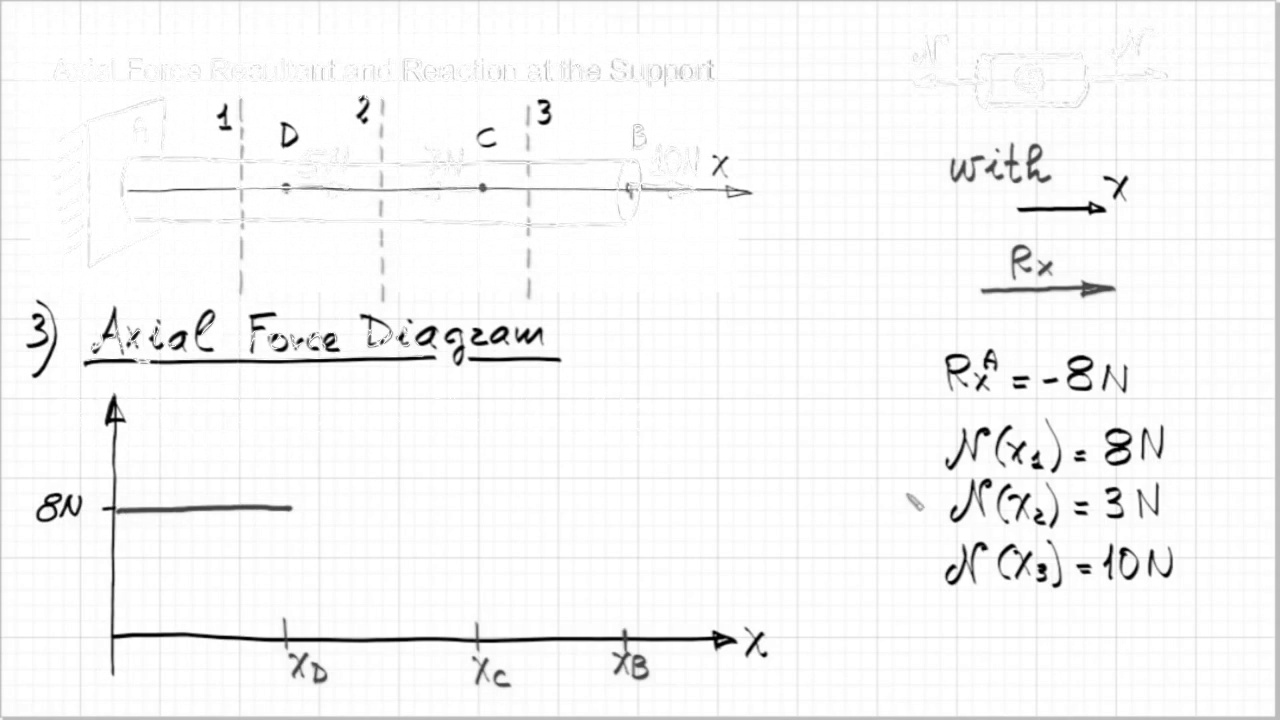 Axial Force Resultant and Reaction at the Support
1 2 3
A D C B
5N 10N X
N N
with
X
Rx
3) Axial Force Diagram
RxA = -8N
N(x1) = 8N
8N
N(x2) = 3N
N(x3) = 10N
X
xD xC xB